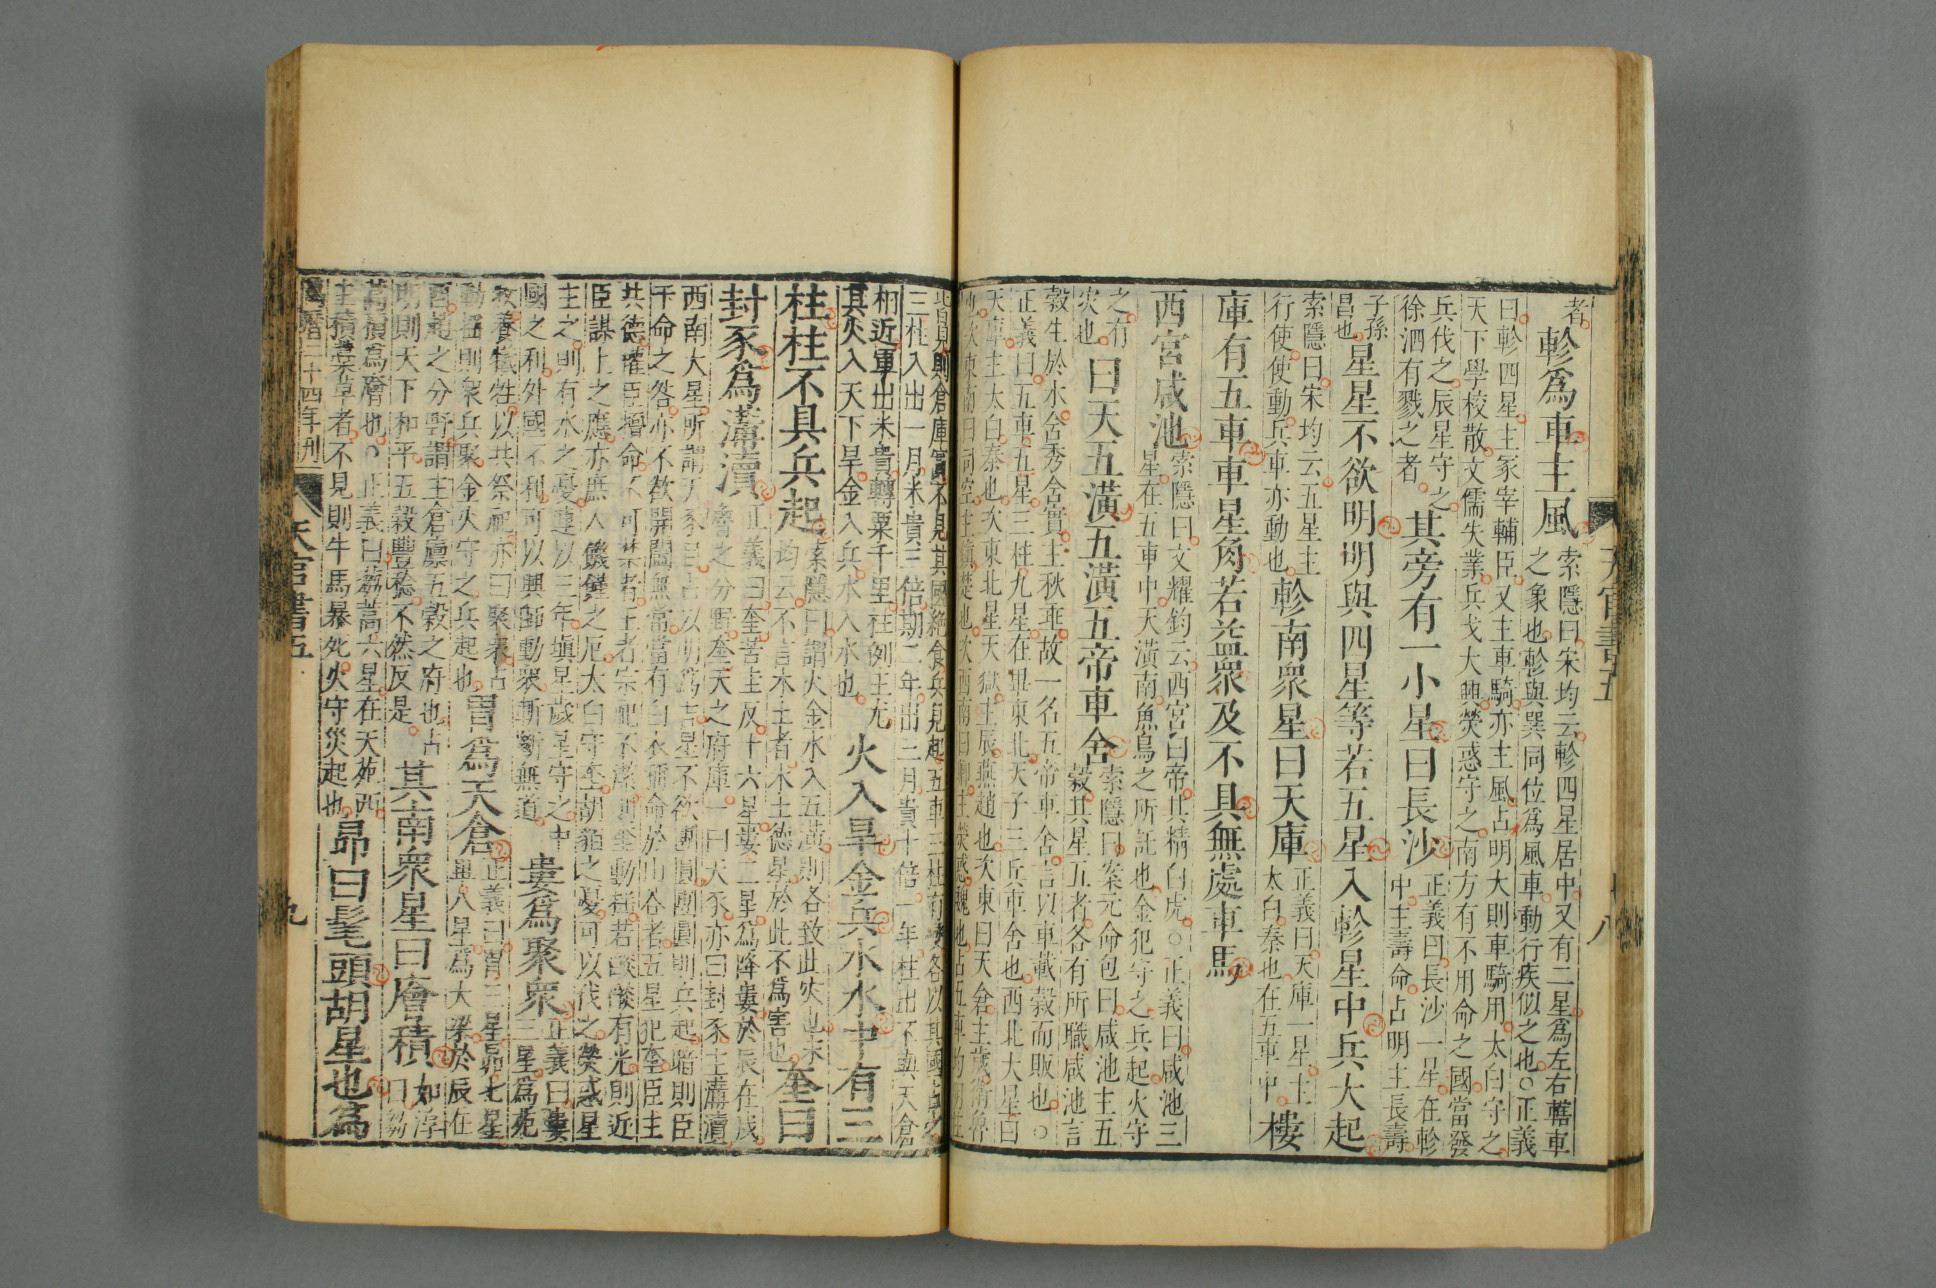 者軫為車主風索隱曰宋均云軫四星居中又有二星為左右轄車
之象也軫與巽同位為風車動行疾似之也○正義
曰軫四星主冢宰輔臣又主車騎亦主風占明大則車騎用太白守之
天下學校散文儒失業兵戈大興熒惑守之南方有不用命之國當發
兵伐之辰星守之
徐泗有戮之者其旁有一小星曰長沙正義曰長沙一星在軫
中主壽命占明主長壽
子孫
昌也星星不欲明明與四星等若五星入軫星中兵大起
索隱曰宋均云五星主
行使使動兵車亦動也軫南衆星曰天庫正義曰天庫一星主
太白秦也在五車中樓
庫有五車車星角若益衆及不具無處車馬
西宮咸池索隱曰文耀鉤云西宮白帝其精白虎○正義曰咸池三
星在五車中天潢南魚鳥之所託也金犯守之兵起火守
之有
災也曰天五潢五潢五帝車舍索隱曰案元命包曰咸池主五
穀其星五者各有所職咸池言
穀生於水含秀含實主秋垂故一名五帝車舍言以車載穀而販也○
正義曰五車五星三柱九星在畢東北天子五兵車舍也西北大星曰
天庫主太白秦也次東北星天獄主辰燕趙也次東曰天倉主歲衛魯
也次東南曰司空主鎮楚也次西南曰卿主熒惑魏也占五車均明柱
皆見則倉庫實不見其國絕食兵見起五車三柱有變各以其國占之
三柱入出一月米貴三倍期二年出三月貴十倍
柱出不與天倉
相近軍出米貴轉粟千里柱倒立尤
其火入天下旱金入兵水入水也火入旱金兵水水中有三
柱柱不具兵起索隱曰謂火金水入五潢則各致此災也宋
均云不言木土者木土德星於此不為害也奎曰
封豕為溝瀆正義曰奎苦圭反十六星婁二星為降婁於辰在戌
魯之分野奎天之府庫一曰天豕亦曰封豕主溝瀆
西南大星所謂天豕目占以明為吉星不欲團圓團圓則兵起暗則臣
干命之咎亦不欲開闔無常當有白衣稱命於山谷者五星犯奎臣主
共德權臣擅命不可禁者王者宗祀不潔則奎動搖若燄燄有光則近
臣謀上之應亦庶人饑饉之厄太白守奎胡貊之憂可以伐之熒惑星
主之則有水之憂連以三年填星歲星守之中
國之利外國不利可以興師動衆斬斷無道婁為聚衆正義曰婁
三星為苑
牧養犧牲以共祭祀亦曰聚衆占
動搖則衆兵聚金火守之兵起也胃為天倉正義曰胃三星昴七星
畢八星為大梁於辰在
酉趙之分野謂主倉廩五穀之府也占
明則天下和平五穀豐稔不然反是其南衆星曰廥積如淳
曰芻
藁積為廥也○正義曰芻藁六星在天苑西
主積藁草者不見則牛馬暴死火守災起也昴曰髦頭胡星也為
天官書五
八
天官書五
九
二十四年刊